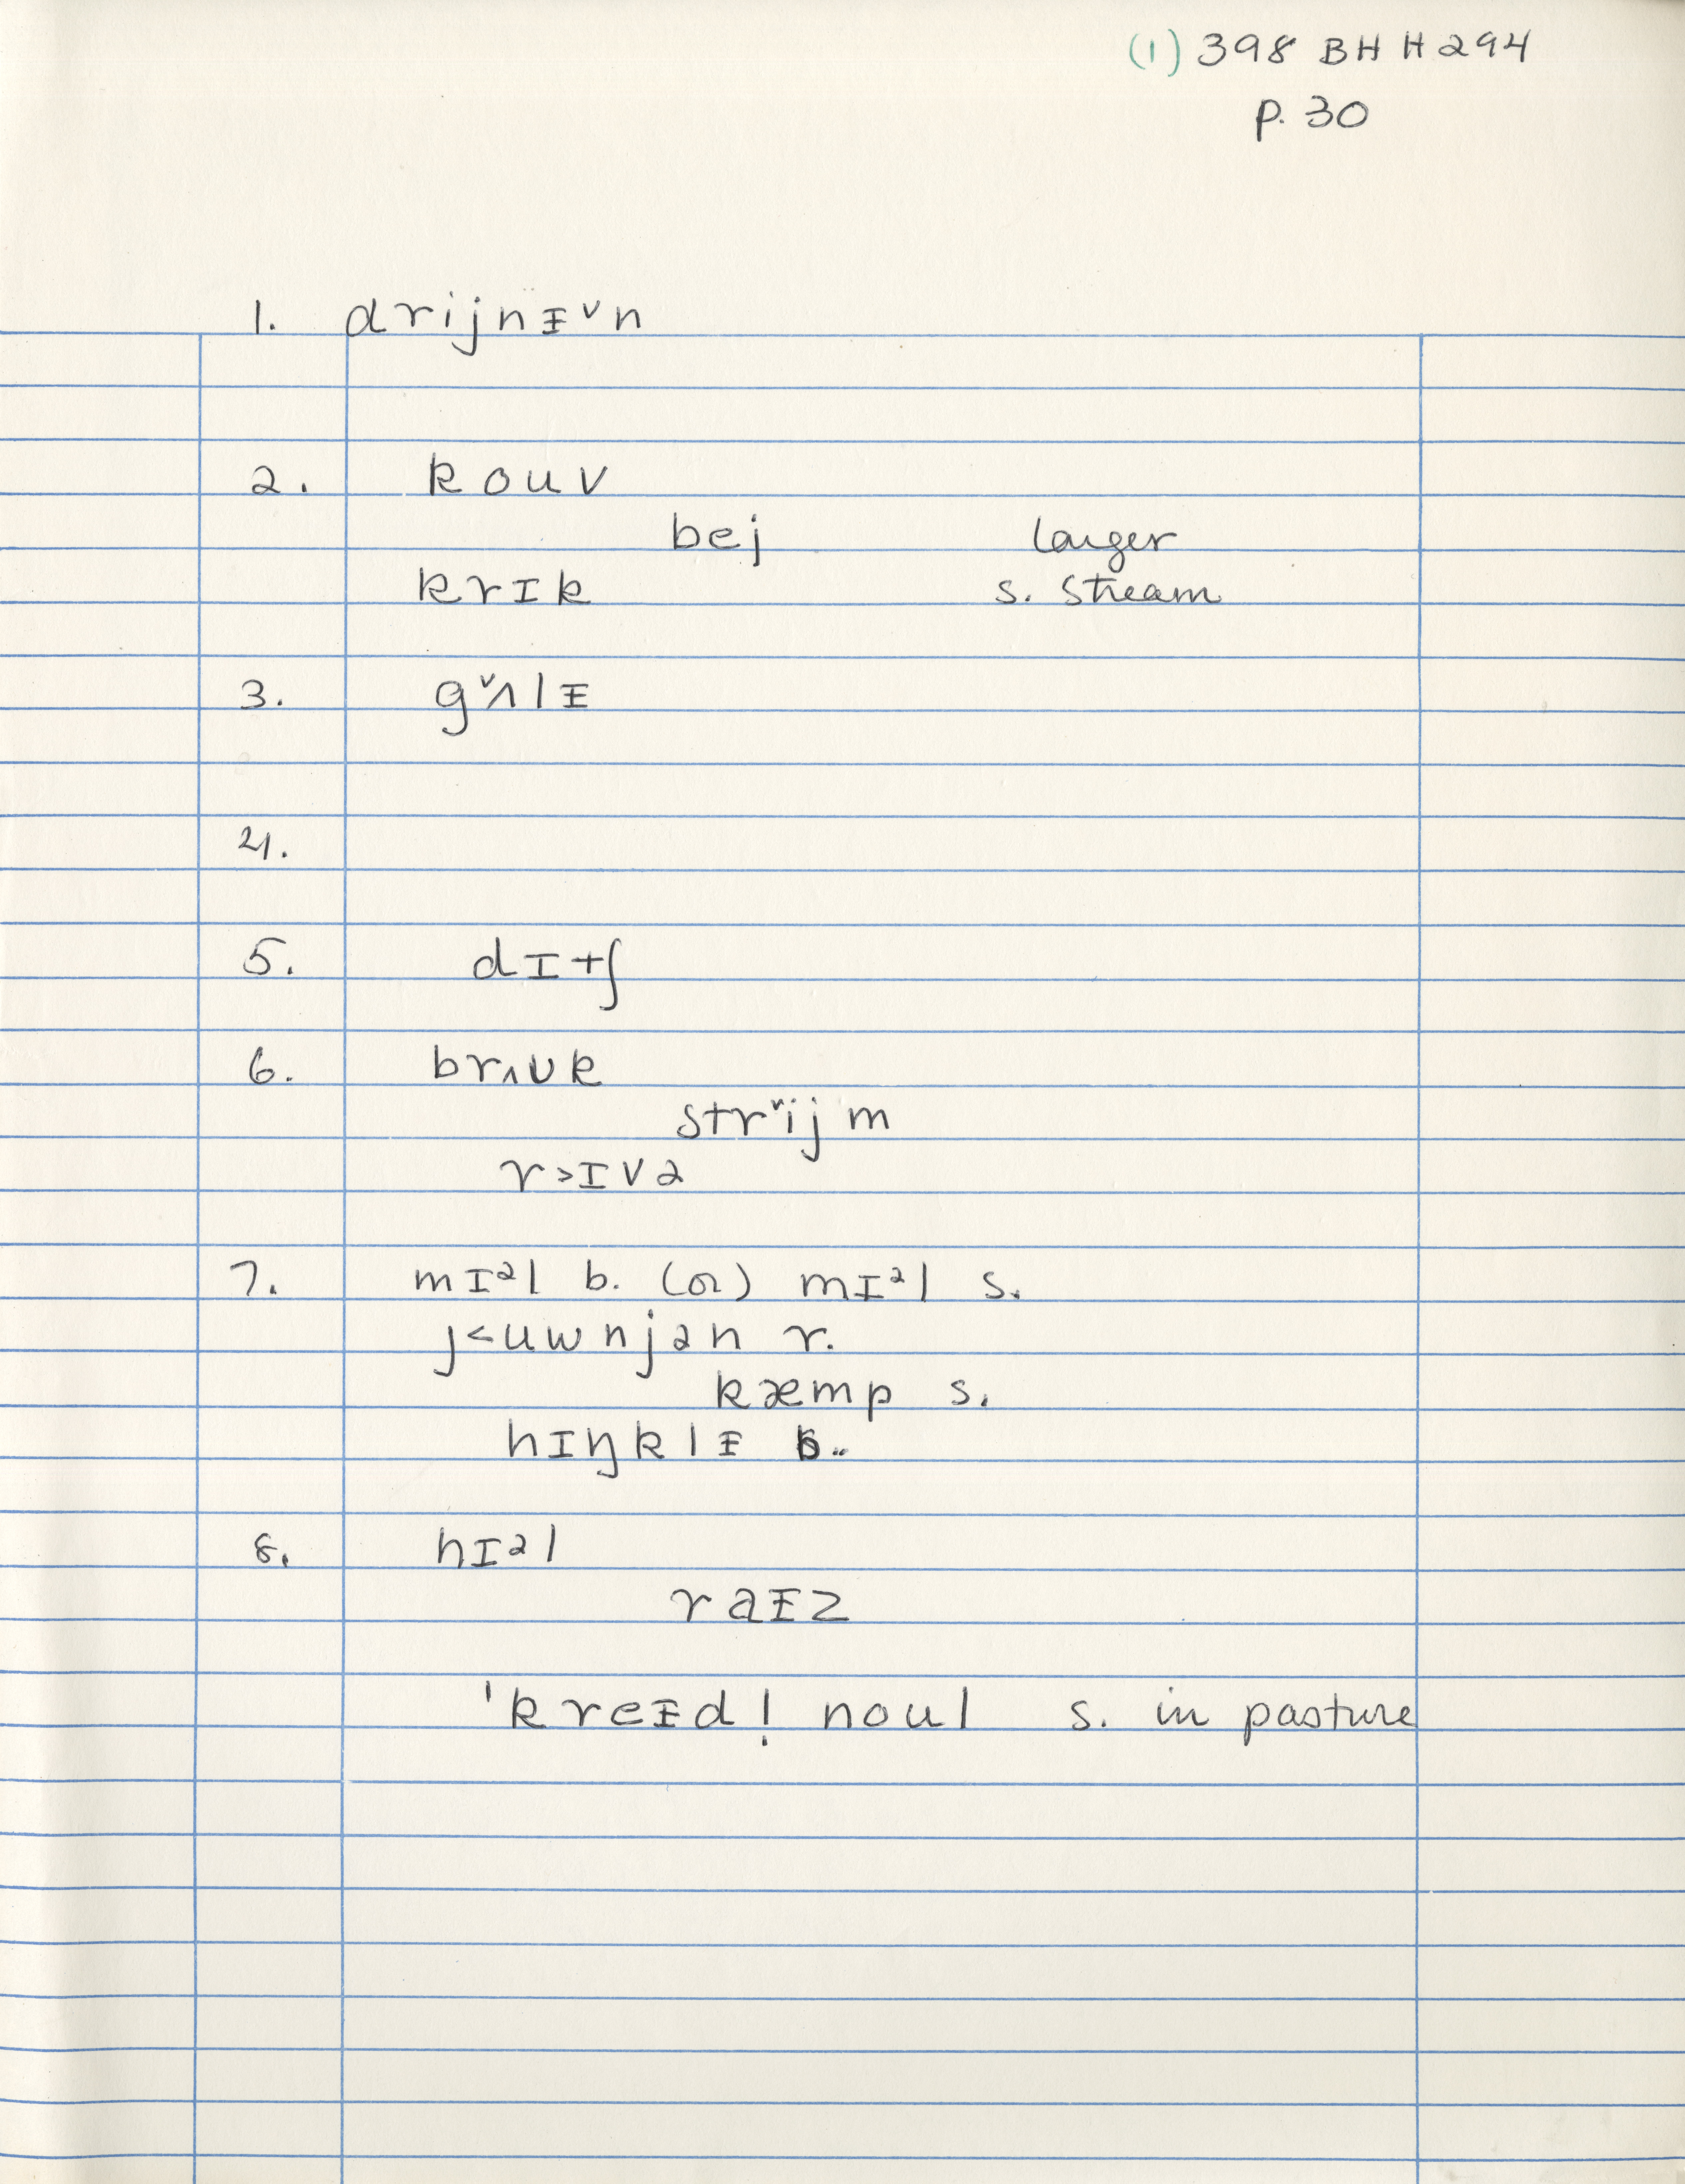 (1) 398 BH H294
p. 30
1. drijnᵻ˅n
2. kouv
bej larger
krɪk s. stream
3. g˅ʌlᵻ
4.
5. dɪtʃ
6. brʌʊk
str˅ijm
r>ɪvə
7. mɪᵊl b. (or) mɪᵊl s.
j<uwnjən r.
kæmp s.
hɪŋklᵻ b.
8. hɪᵊl
raᵻz
'kreᵻdl̩ noul s. in pasture